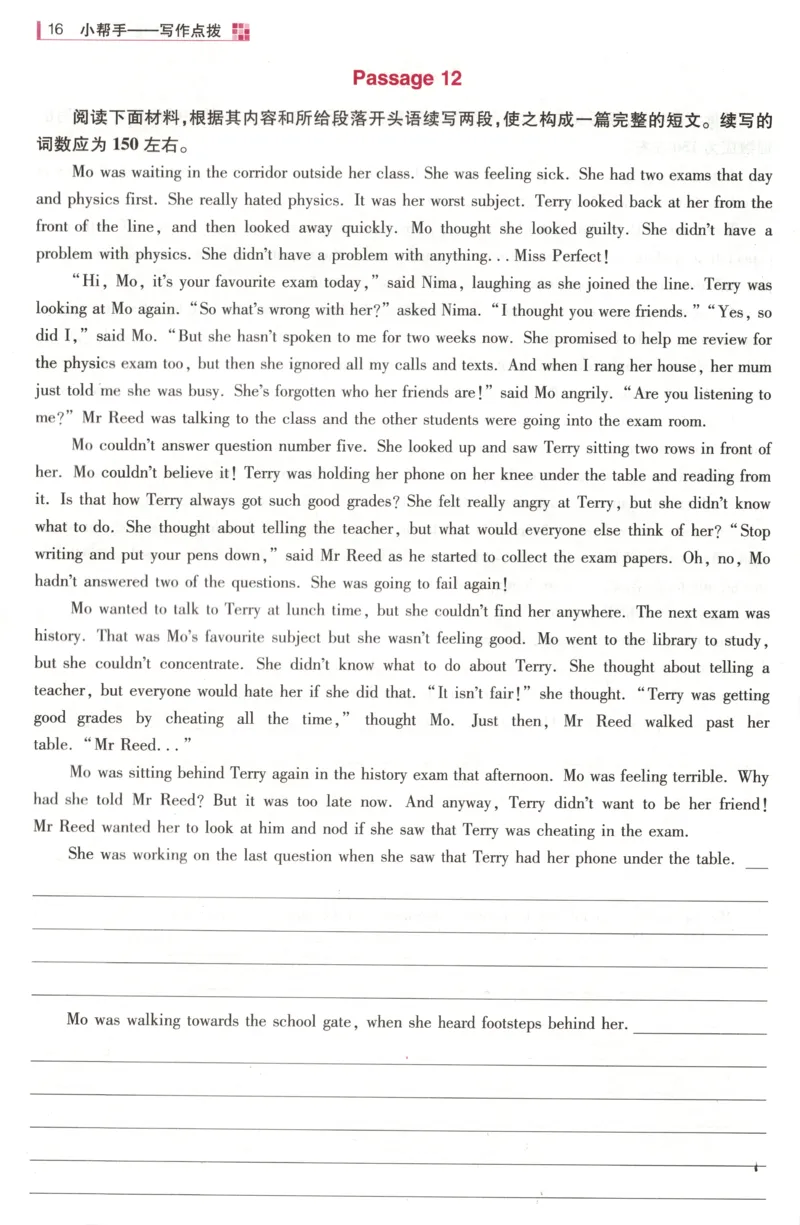 16 小帮手——写作点拨
Passage 12
阅读下面材料,根据其内容和所给段落开头语续写两段,使之构成一篇完整的短文。续写的
词数应为 150 左右。
Mo was waiting in the corridor outside her class. She was feeling sick. She had two exams that day
and physics first. She really hated physics. It was her worst subject. Terry looked back at her from the
front of the line, and then looked away quickly. Mo thought she looked guilty. She didn't have a
problem with physics. She didn't have a problem with anything... Miss Perfect!
“Hi, Mo, it's your favourite exam today,” said Nima, laughing as she joined the line. Terry was
looking at Mo again. “So what's wrong with her?” asked Nima. “I thought you were friends.” “Yes, so
did I,” said Mo. “But she hasn't spoken to me for two weeks now. She promised to help me review for
the physics exam too, but then she ignored all my calls and texts. And when I rang her house, her mum
just told me she was busy. She's forgotten who her friends are!” said Mo angrily. “Are you listening to
me?” Mr Reed was talking to the class and the other students were going into the exam room.
Mo couldn't answer question number five. She looked up and saw Terry sitting two rows in front of
her. Mo couldn't believe it! Terry was holding her phone on her knee under the table and reading from
it. Is that how Terry always got such good grades? She felt really angry at Terry, but she didn't know
what to do. She thought about telling the teacher, but what would everyone else think of her? “Stop
writing and put your pens down,” said Mr Reed as he started to collect the exam papers. Oh, no, Mo
hadn't answered two of the questions. She was going to fail again!
Mo wanted to talk to Terry at lunch time, but she couldn't find her anywhere. The next exam was
history. That was Mo's favourite subject but she wasn't feeling good. Mo went to the library to study,
but she couldn't concentrate. She didn't know what to do about Terry. She thought about telling a
teacher, but everyone would hate her if she did that. “It isn't fair!” she thought. “Terry was getting
good grades by cheating all the time,” thought Mo. Just then, Mr Reed walked past her
table. “Mr Reed...”
Mo was sitting behind Terry again in the history exam that afternoon. Mo was feeling terrible. Why
had she told Mr Reed? But it was too late now. And anyway, Terry didn't want to be her friend!
Mr Reed wanted her to look at him and nod if she saw that Terry was cheating in the exam.
She was working on the last question when she saw that Terry had her phone under the table.
Mo was walking towards the school gate, when she heard footsteps behind her.